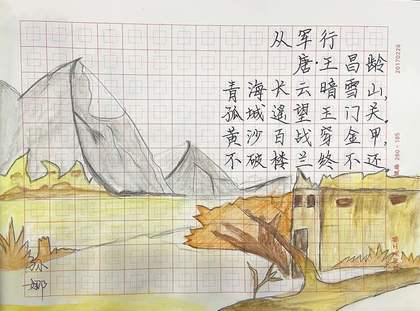 从军行
唐·王昌龄
青海长云暗雪山,
孤城遥望玉门关.
黄沙百战穿金甲,
不破楼兰终不还
20170228
娜